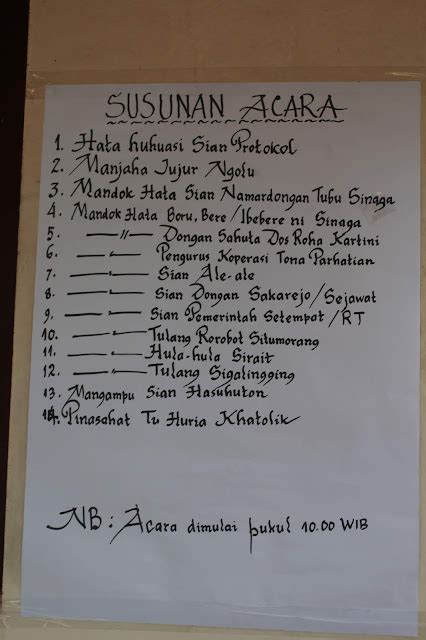 SUSUNAN ACARA
1. Hata huhuasi Sian Protokol
2. Manjaha Jujur Ngolu
3. Mandok Hata Sian Namardongan Tubu Sinaga
4. Mandok Hata Boru, Bere / Ibebere ni Sinaga
5. —— 〃 —— Dongan Sahuta Dos Roha Kartini
6. —— 〃 —— Pengurus Koperasi Tona Parhatian
7. —— 〃 —— Sian Ale-ale
8. —— 〃 —— Sian Dongan Sakarejo / Sejawat
9. —— 〃 —— Sian Pemerintah Setempat / RT
10. —— 〃 —— Tulang Rorobot Situmorang
11. —— 〃 —— Hula-hula Sirait
12. —— 〃 —— Tulang Sigalingging
13. Mangampu Sian Hasuhuton
14. Pinasahat Tu Huria Khatolik
NB : Acara dimulai pukul 10.00 WIB